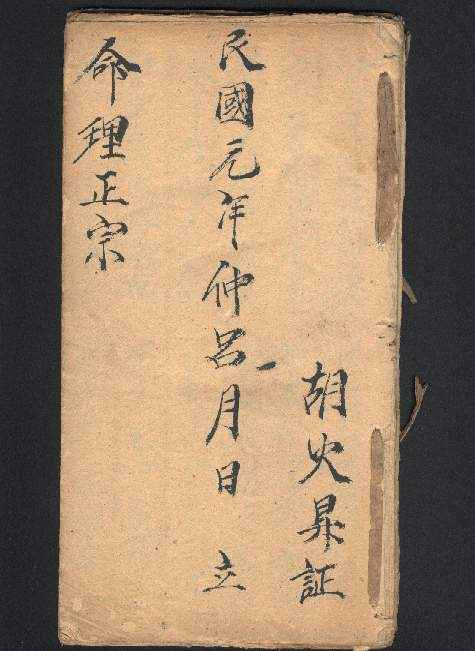 胡火昇証
民國元年仲呂月日 立
命理正宗